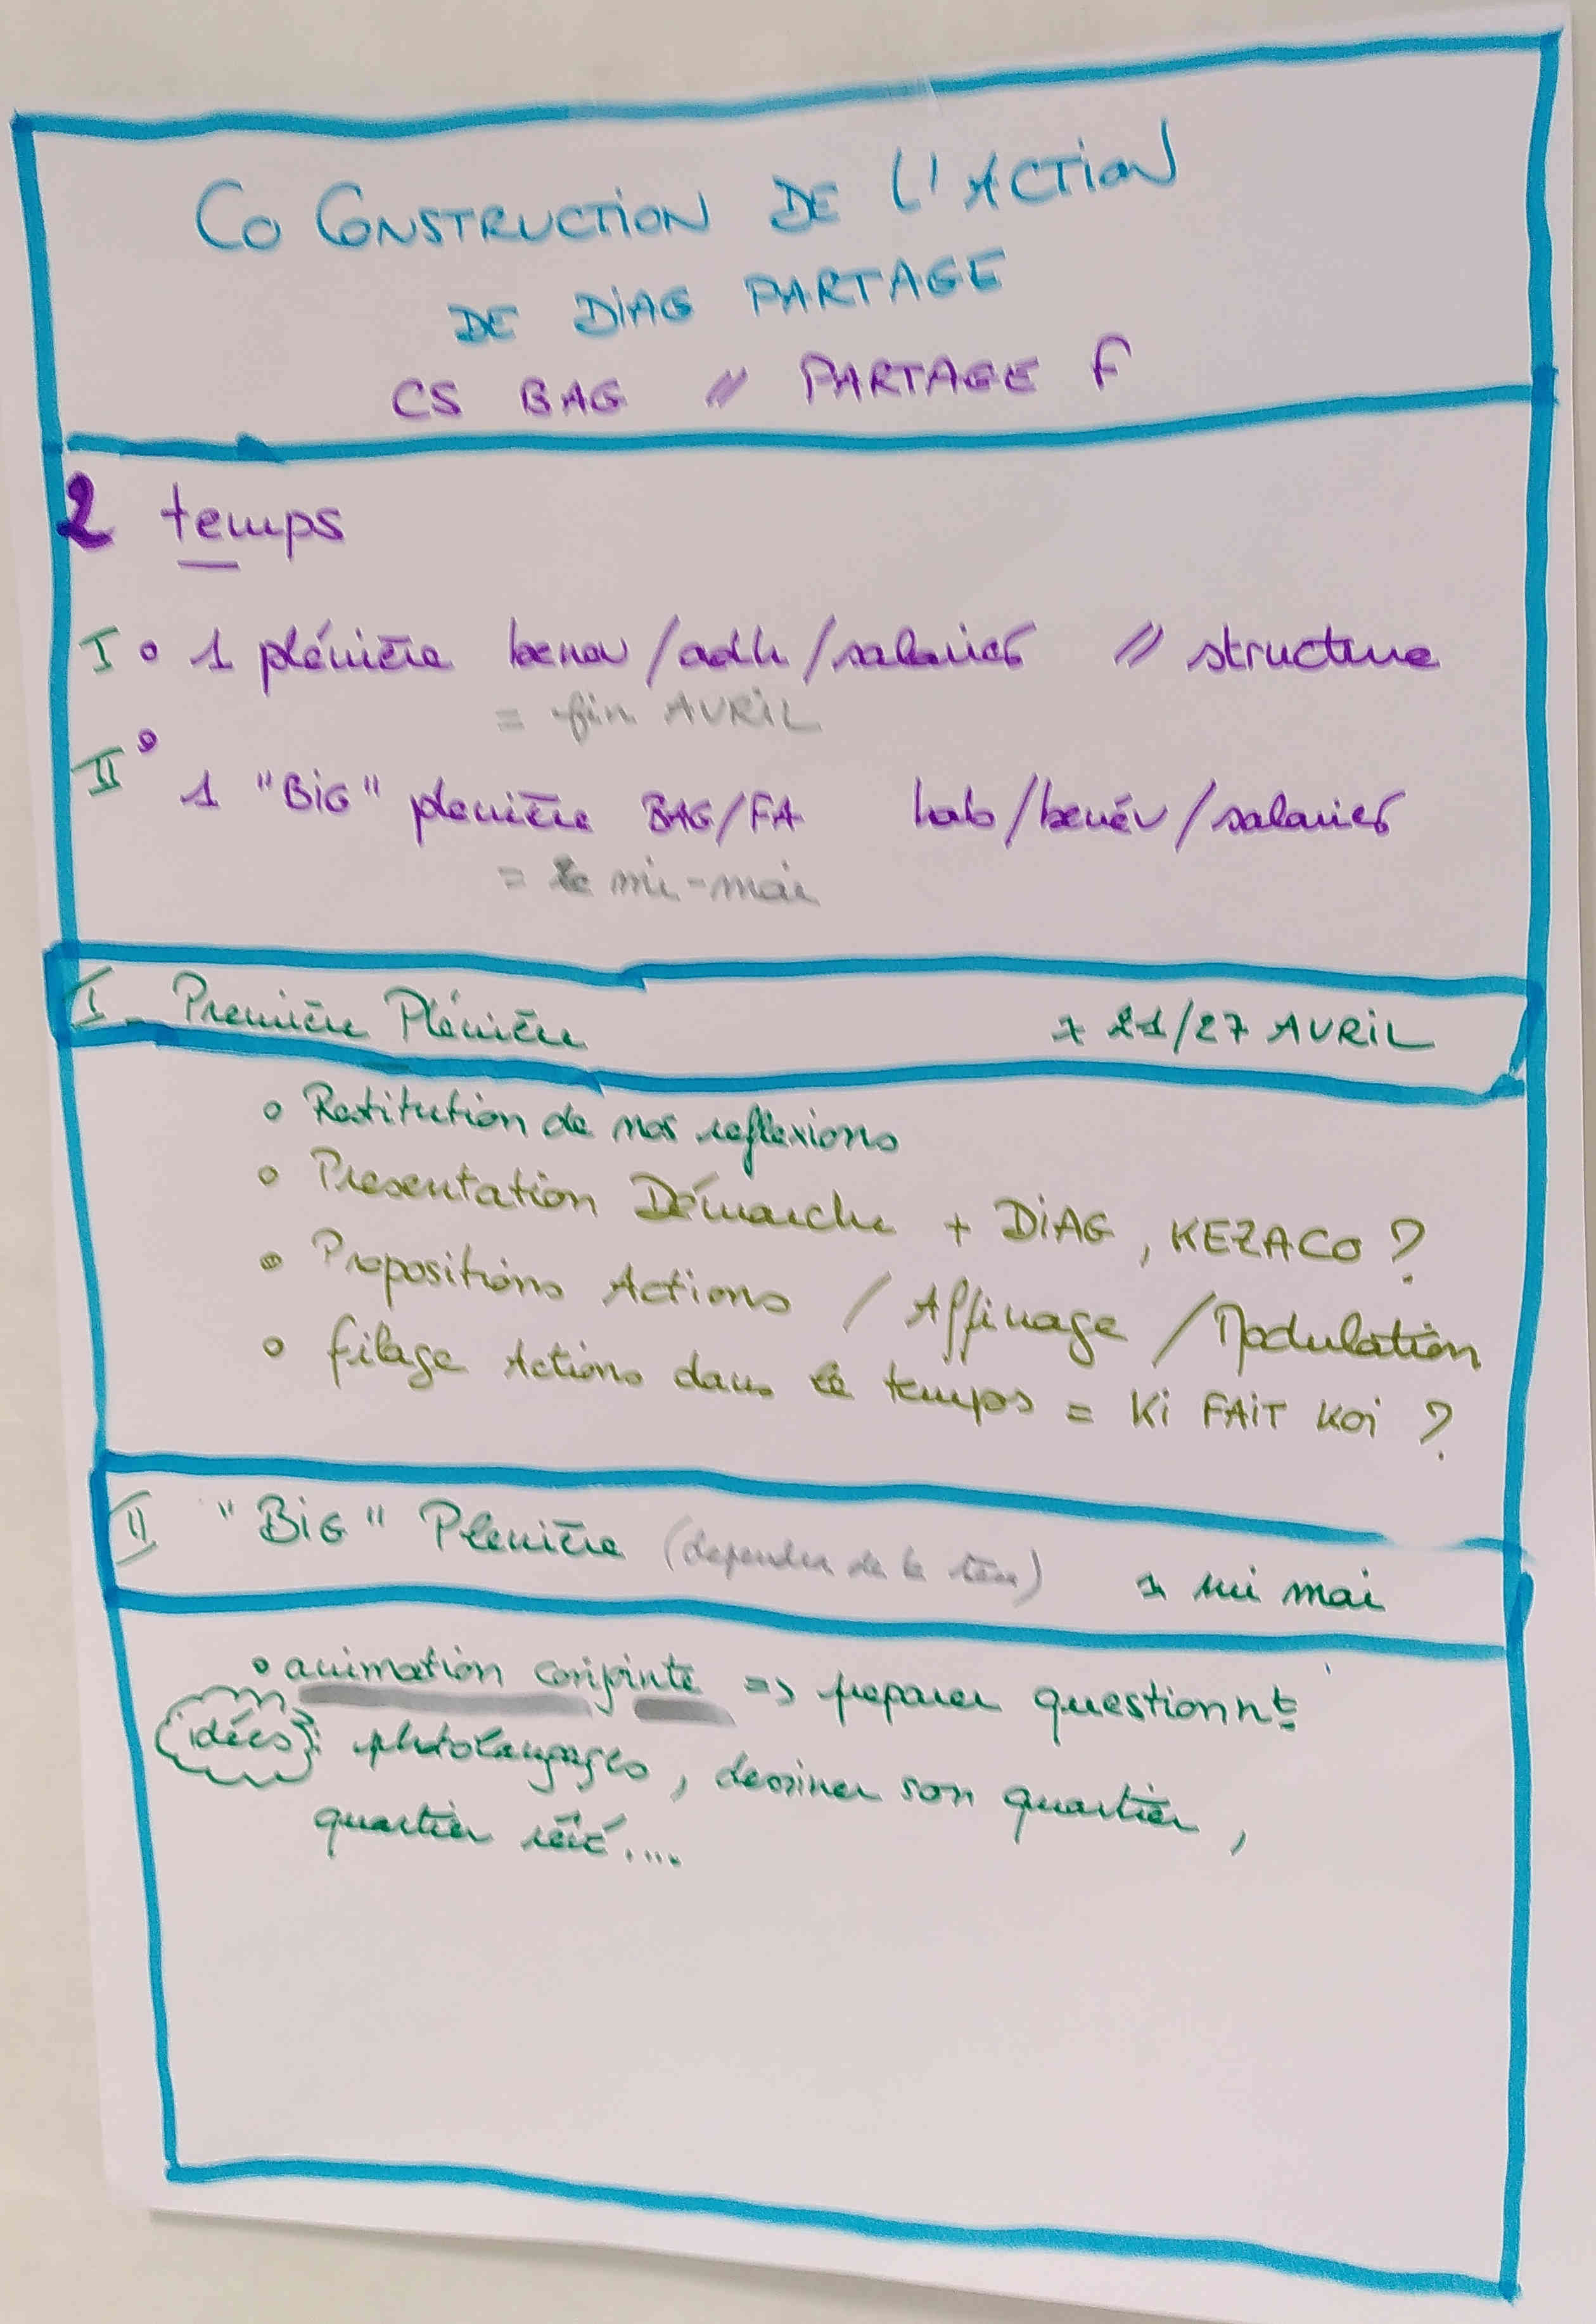 CO CONSTRUCTION DE L'ACTION
DE DIAG PARTAGE
CS BAG // PARTAGE F
2 temps
I ° 1 plénière benev/adh/salariés // structure
= fin AVRIL
II ° 1 "BiG" plenière BAG/FA hab/benév/salariés
= mi-mai
I - Première Plénière 21/27 AVRIL
° Restitution de nos reflexions
° Presentation Démarche + DiAG, KEZACO ?
° Propositions Actions / Affinage / Modulation
° filage Actions dans le temps = Ki FAIT KOi ?
II "BiG" Plenière (dependra de la 1ère) mi mai
° animation conjointe => preparer questionnts
idées : photolangages, dessiner son quartier,
quartier rêvé....